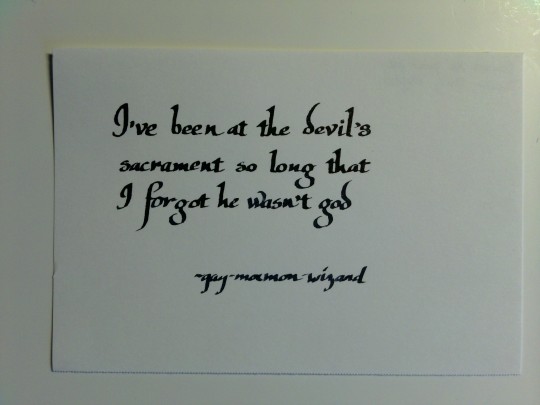 I've been at the devil's
sacrament so long that
I forgot he wasn't god
-gay-mormon-wizard